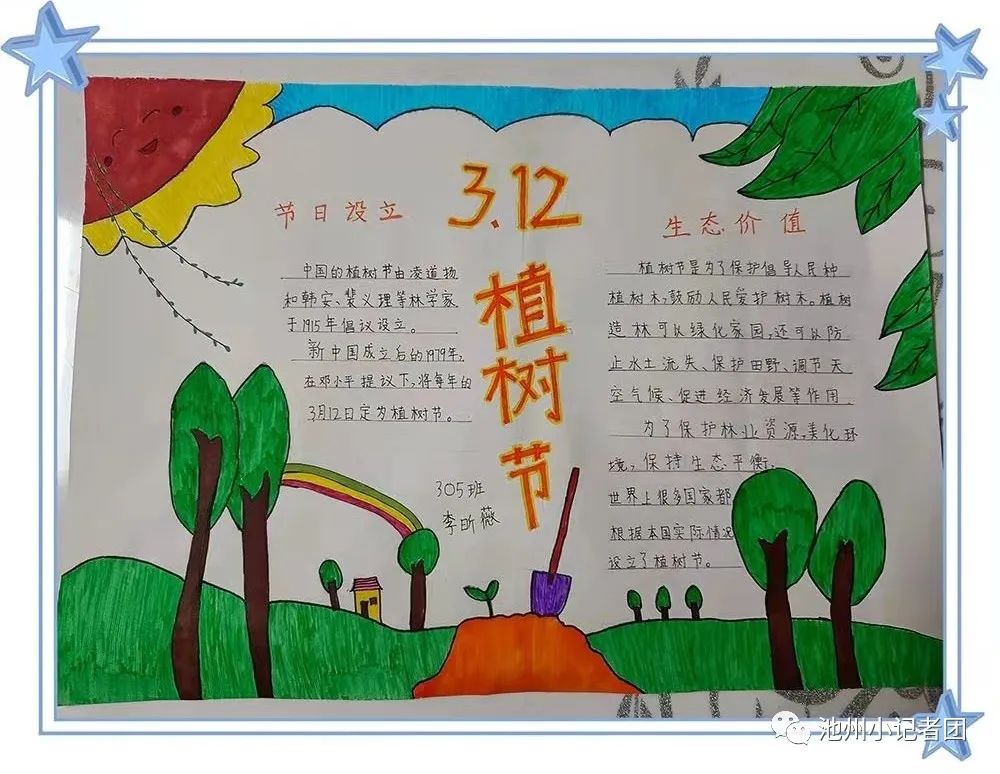 3.12
植树节
节日设立
中国的植树节由凌道扬
和韩安、裴义理等林学家
于1915年倡议设立。
新中国成立后的1979年,
在邓小平提议下,将每年的
3月12日定为植树节。
305班
李昕薇
生态价值
植树节是为了保护倡导人民种
植树木,鼓励人民爱护树木。植树
造林可以绿化家园,还可以防
止水土流失、保护田野、调节天
空气候、促进经济发展等作用
为了保护林业资源,美化环
境,保持生态平衡,
世界上很多国家都
根据本国实际情况
设立了植树节。
池州小记者团